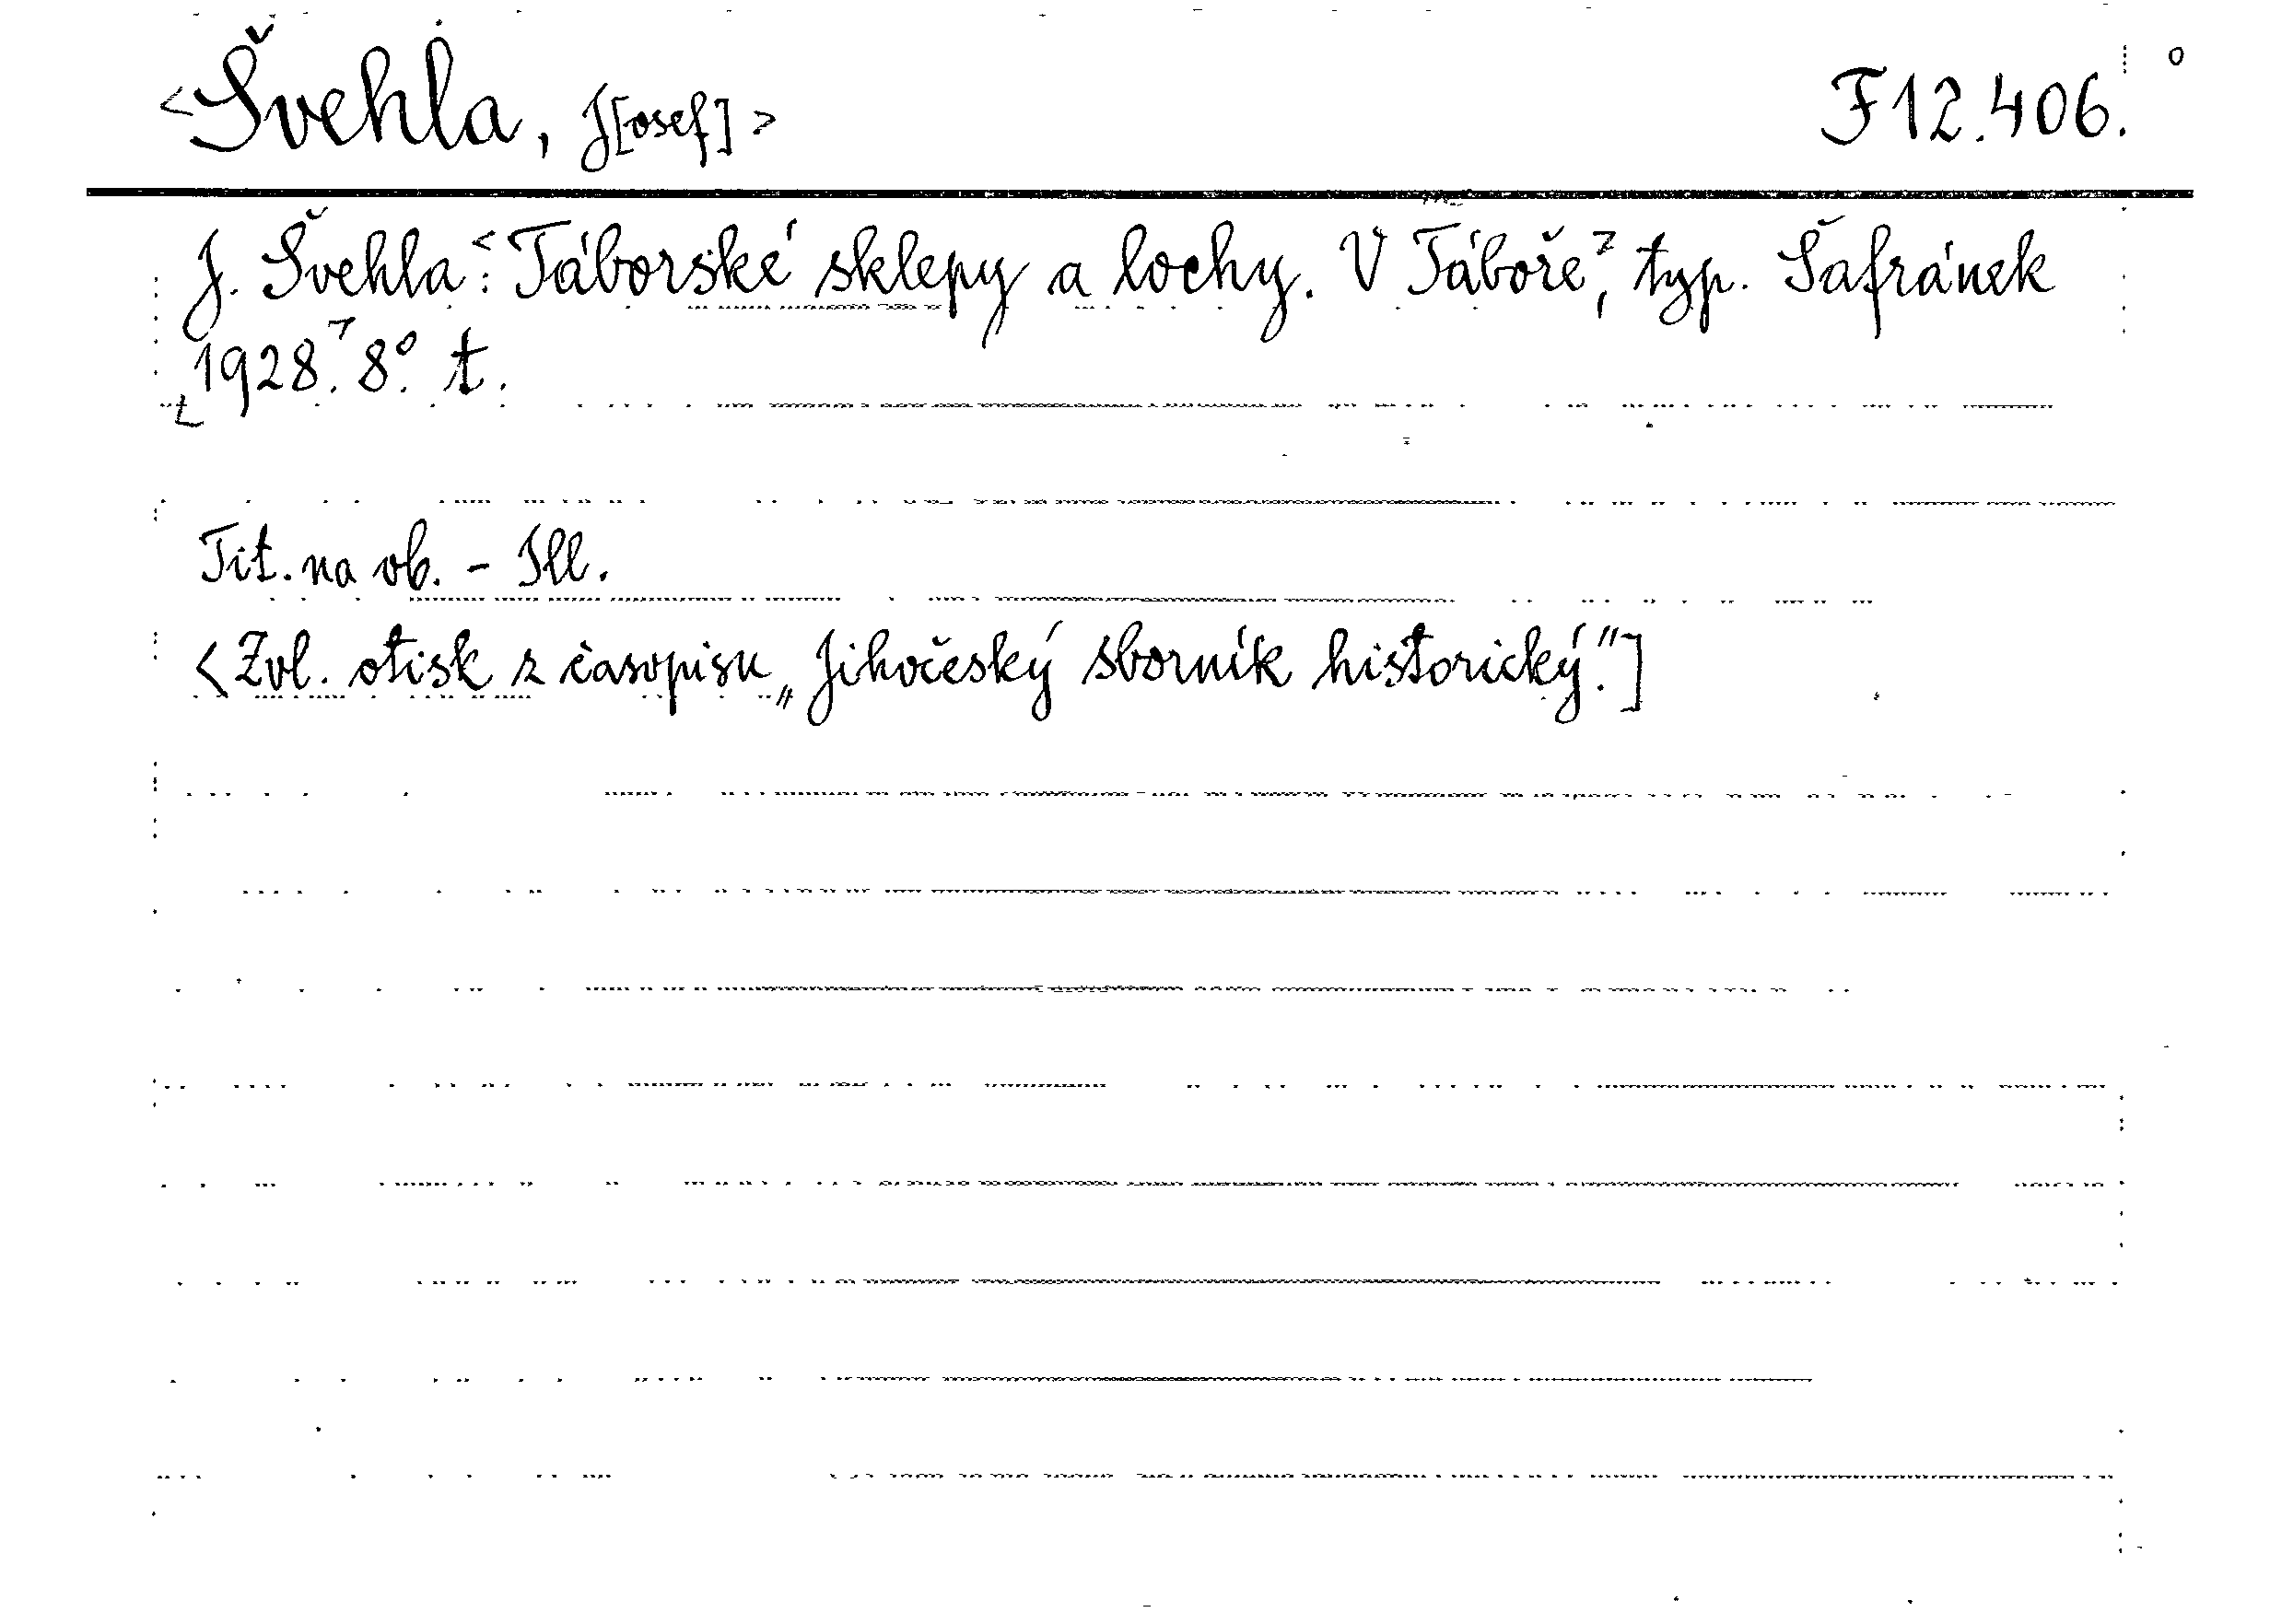 <Švehla, J[osef]> F12.406.
J. Švehla:<Táborské sklepy a lochy. V Táboře>, typ. Šafránek
<1928.> 8°. t.
Tit. na ob. - Ill.
<Zvl. otisk z časopisu „Jihočeský sborník historický."]